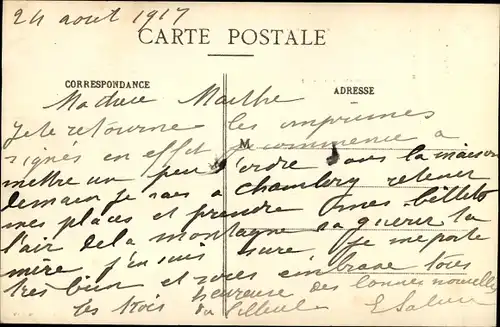 24 aout 1917
CARTE POSTALE
CORRESPONDANCE
ADRESSE
Ma chere Marthe
Je te retourne les imprimes
M
signés en effet je commence a
mettre un peu d'ordre dans la maison
demain je vais a Chambery retenir
mes places et prendre mes billets
l'air de la montagne va guerir ta
mère j'en suis sure je me porte
tres bien et vous embrasse tous
les trois heureuse des bonnes nouvelles